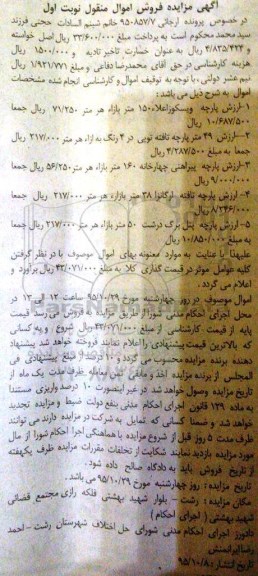 آگهی مزایده فروش اموال منقول نوبت اول
در خصوص پرونده ارجاعی ۹۵۰۸۵۷/۷ خانم شبنم السادات حجتی فرزند
سید محمد محکوم است به پرداخت مبلغ ۳۳/۶۰۰/۰۰۰ ریال اصل خواسته
و ۴/۸۳۵/۴۲۴ ریال به عنوان خسارت تاخیر تادیه و ۱۵۰۰/۰۰۰ ریال
هزینه کارشناسی در حق آقای محمدرضا دفاعی و مبلغ ۱/۹۲۱/۷۷۱ ریال
نیم عشر دولتی، با توجه به توقیف اموال و کارشناسی انجام شده مشخصات
اموال به شرح ذیل می باشد:
۱-ارزش پارچه ویسکوزاعلا ۱۵۰ متر بازاء هر متر ۷۱/۲۵۰ ریال جمعا
۱۰/۶۸۷/۵۰۰ ریال
۲-ارزش ۴۹ متر پارچه تافته توپی در ۴ رنگ به ازاء هر متر ۲۱۷/۰۰۰ ریال
جمعا به مبلغ ۴/۲۸۷/۵۰۰ ریال
۳-ارزش پارچه پیراهنی چهارخانه ۱۶۰ متر بازاء هر متر ۵۶/۲۵۰ ریال جمعا
۹/۰۰۰/۰۰۰ ریال
۴- ارزش پارچه تافته ارگانزا ۳۸ متر بازاء هر متر ۲۱۷/۰۰۰ ریال جمعا
۸/۲۴۶/۰۰۰ ریال
۵- ارزش پارچه پنل برگ درشت ۵۰ متر بازاء هر متر ۲۱۷/۰۰۰ ریال جمعا
به مبلغ ۱۰/۸۵۰/۰۰۰ ریال
علیهذا با عنایت به موارد معنونه بهای اموال موصوف با در نظر گرفتن
کلیه عوامل موثر در قیمت گذاری کلا به مبلغ ۴۳/۰۷۱/۰۰۰ ریال برآورد و
اعلام می گردد.
اموال موصوف در روز چهارشنبه مورخ ۹۵/۱۰/۲۹ ساعت ۱۲ الی ۱۳ در
محل اجرای احکام مدنی شورا از طریق مزایده به فروش می رسد قیمت
پایه از قیمت کارشناسی از مبلغ ۴۳/۰۷۱/۰۰۰ ریال شروع و به کسانی
که بالاترین قیمت پیشنهادی را اعلام نمایند فروخته خواهد شد پیشنهاد
دهنده برنده مزایده محسوب می گردد و ۱۰ درصد مبلغ پیشنهادی فی
المجلس از برنده مزایده اخذ و مابقی ثمن معامله ظرف مدت یک ماه از
تاریخ مزایده وصول خواهد شد در غیر اینصورت ۱۰ درصد واریزی مستندا
به ماده ۱۲۹ قانون اجرای احکام مدنی بنفع دولت ضبط و مزایده تجدید
خواهد شد و ضمنا کسانی که تمایل به شرکت در مزایده دارند می توانند
ظرف مدت ۵ روز قبل از شروع مزایده با هماهنگی اجرا احکام شورا از مال
مورد مزایده بازدید نمایند شکایت از تخلفات مقررات مزایده ظرف یکهفته
از تاریخ فروش باید به دادگاه صالح داده شود.
تاریخ مزایده: روز چهارشنبه مورخ ۹۵/۱۰/۲۹ می باشد.
مکان مزایده: رشت - بلوار شهید بهشتی فلکه رازی مجتمع قضائی
شهید بهشتی (اجرای احکام)
دادورز اجرای احکام مدنی شورای حل اختلاف شهرستان رشت - احمد
رضا ایرانمنش
تاریخ انتشار: ۹۵/۱۰/۸